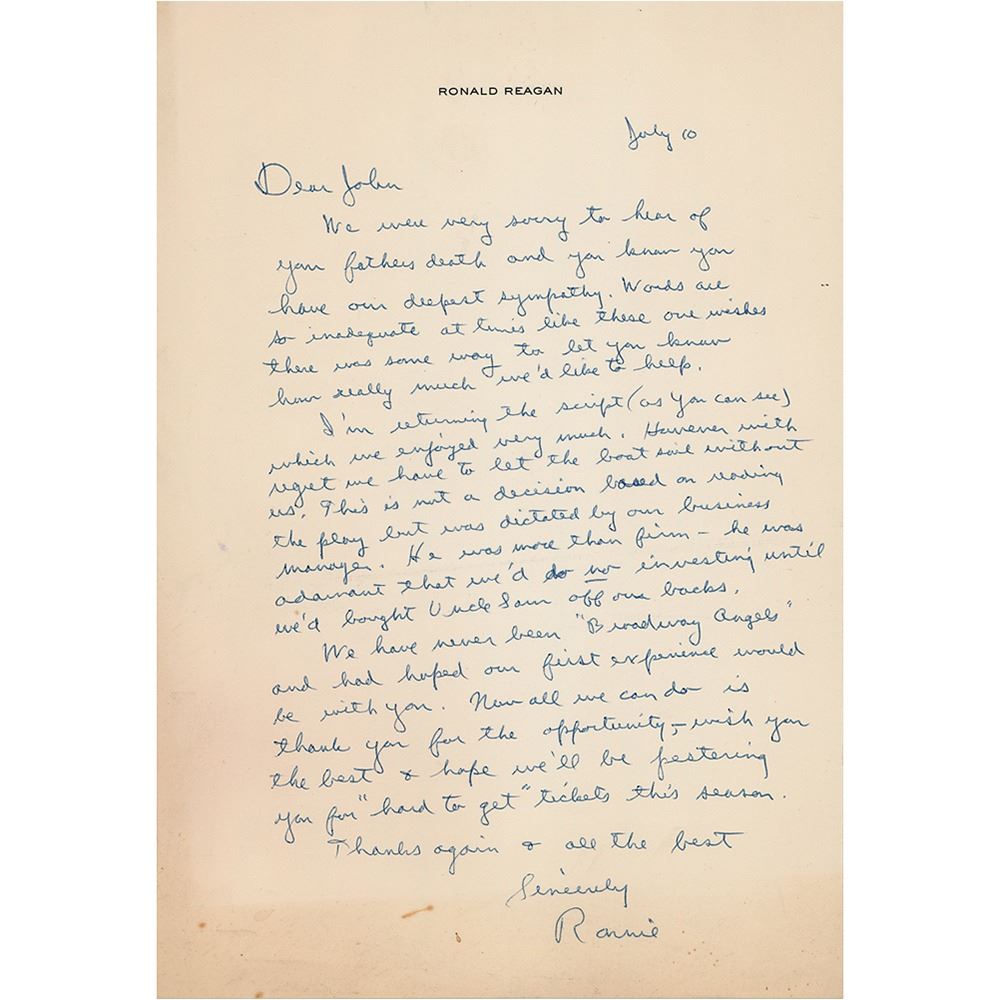 RONALD REAGAN
July 10
Dear John
We were very sorry to hear of
your fathers death and you know you
have our deepest sympathy. Words are
so inadequate at times like these one wishes
there was some way to let you know
how really much we'd like to help.
I'm returning the script (as you can see)
which we enjoyed very much. However with
regret we have to let the boat sail without
us. This is not a decision based on reading
the play but was dictated by our business
manager. He was more than firm – he was
adamant that we'd do no investing until
we'd bought Uncle Sam off our backs.
We have never been "Broadway Angels"
and had hoped our first experience would
be with you. Now all we can do is
thank you for the opportunity, – wish you
the best & hope we'll be pestering
you for "hard to get" tickets this season.
Thanks again & all the best
Sincerely
Ronnie